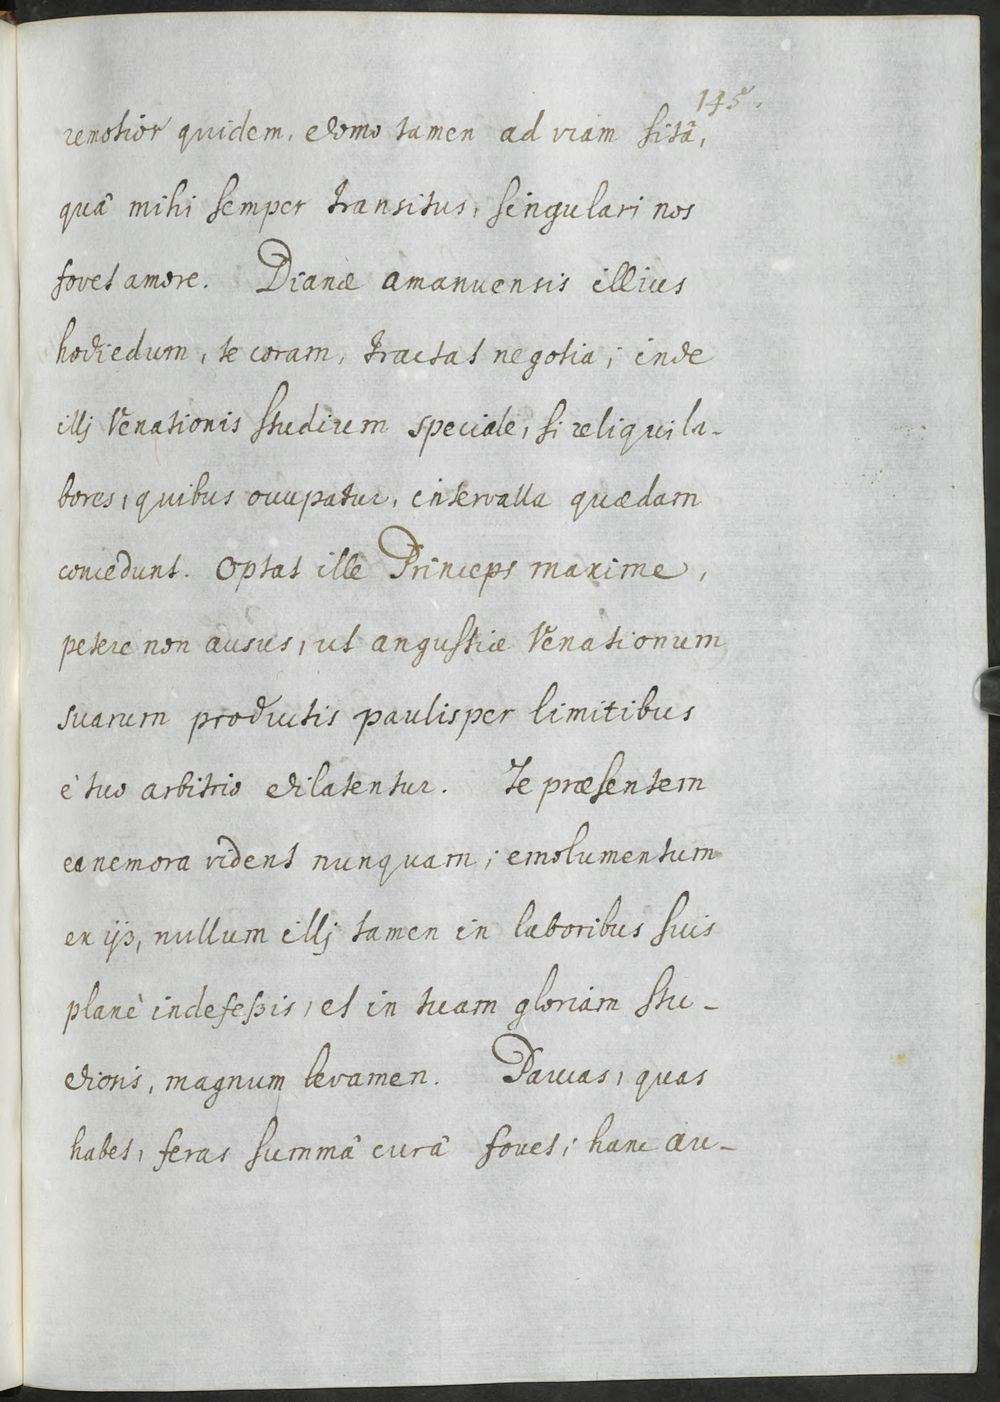 145.
remotior quidem, domo tamen ad viam sitâ,
quâ mihi semper transitus, singulari nos
fovet amore. Dianæ amanuensis illius
hodiedum, te coram, tractat negotia; inde
illj Venationis studium speciale, si reliqui la-
bores, quibus occupatur, intervalla quædam
concedunt. Optat ille Princeps maxime,
petere non ausus, ut angustiæ Venationum
suarum productis paulisper limitibus
è tuo arbitrio dilatentur. Te præsentem
ea nemora vident nunquam; emolumentum
ex ijs, nullum illj tamen in laboribus suis
planè indefeßis, et in tuam gloriam stu-
diosis, magnum levamen. Paucas, quas
habet, feras summâ curâ fovet; hanc au-